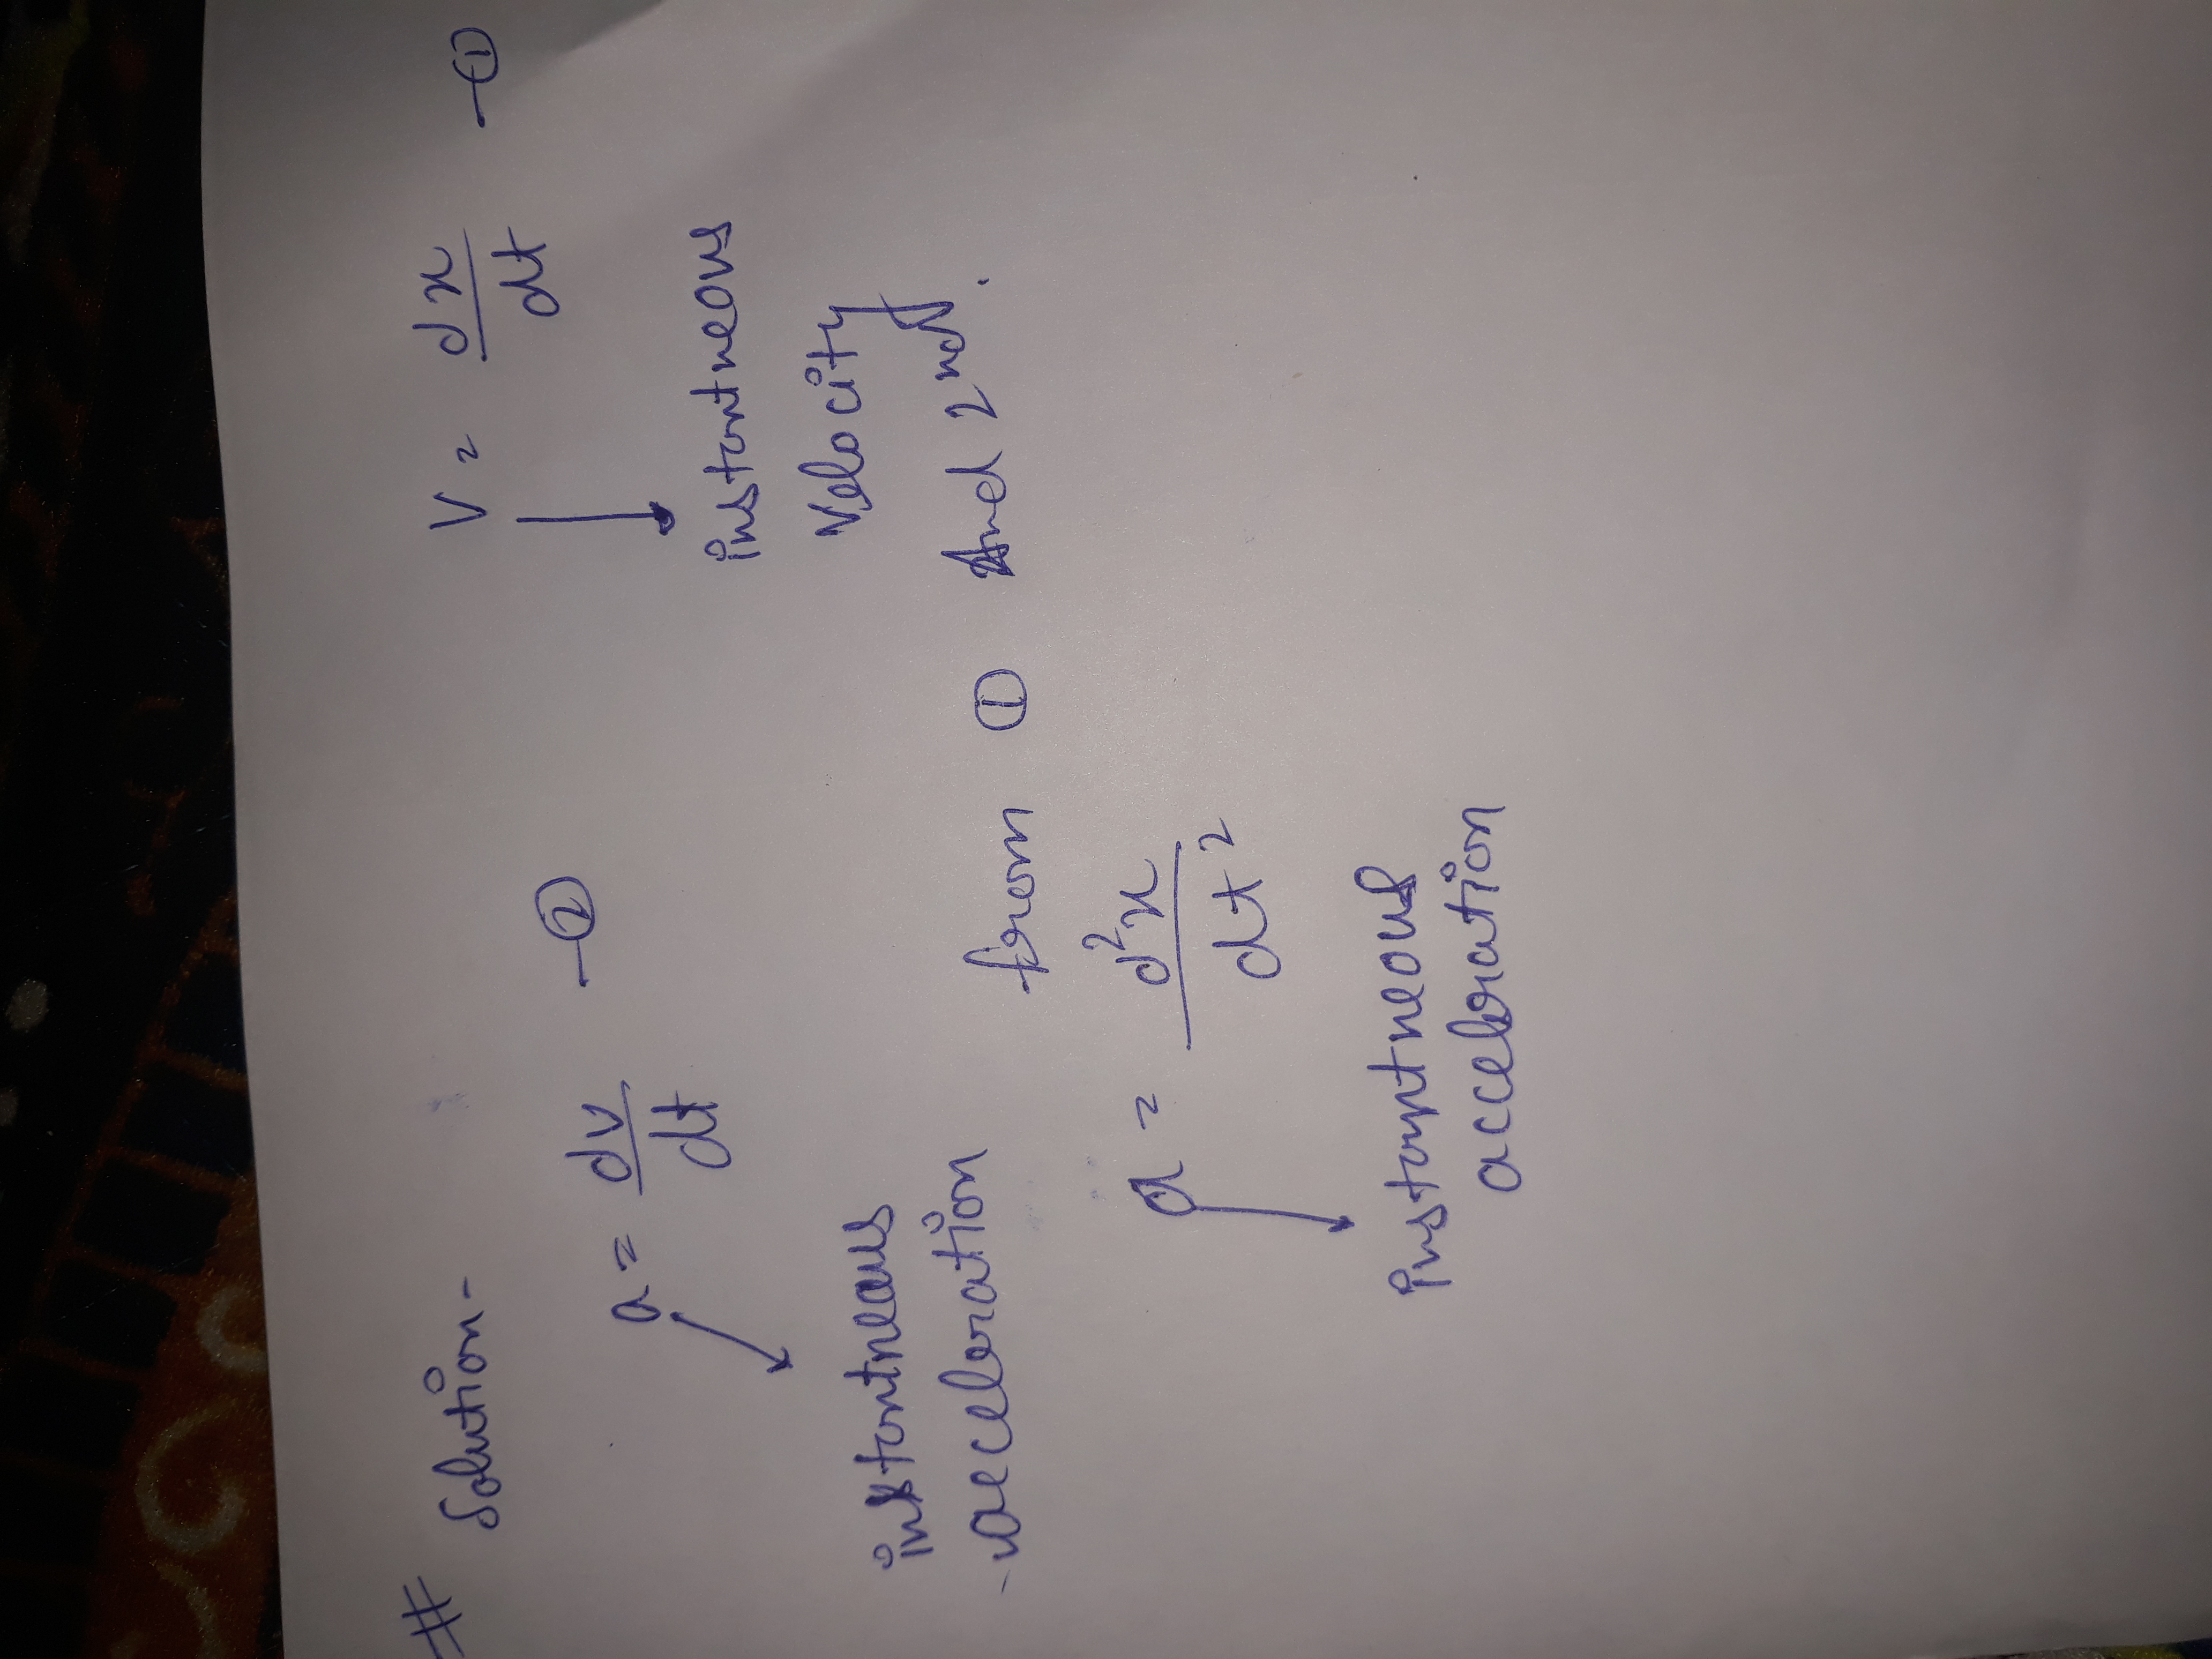 # Solution-
v = dx/dt -①
instantneous
Velocity
a = dv/dt -②
instantneous
acceleration
from ① and 2 nd.
a = d²x/dt²
instantneous
acceleration